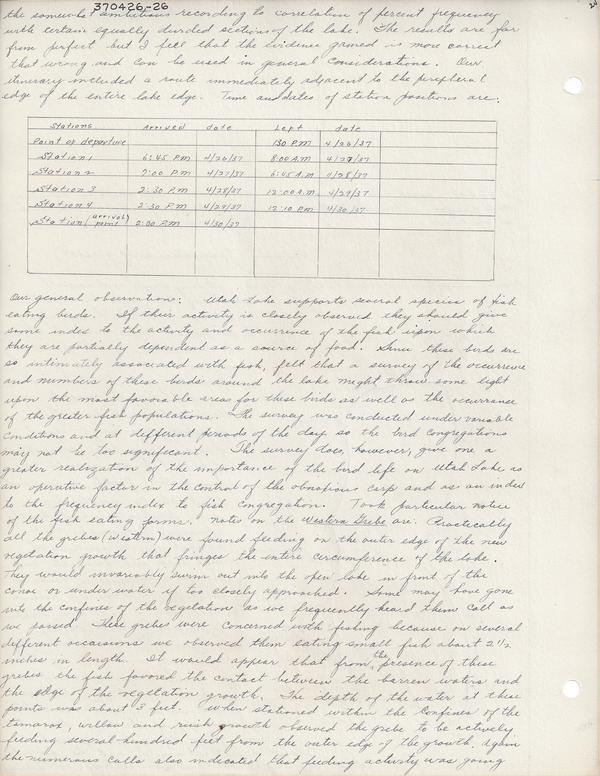 370426-26
24
the somewhat ambitious recording to correlation of percent frequency
with certain equally divided sections of the lake. The results are far
from perfect but I feel that the evidence gained is more correct
that wrong and can be used in general considerations. Our
itinerary included a route immediately adjacent to the peripheral
edge of the entire lake edge. Time and dates of station positions are:
Stations Arrived date Left date
Point of departure 130 P.M 4/26/37
Station 1 6:45 P.M 4/26/37 8:00 A.M 4/27/37
Station 2 7:00 P.M 4/27/37 6:45 A.M 4/28/37
Station 3 2:30 P.M 4/28/37 12:00 A.M 4/29/37
Station 4 2:30 P.M 4/29/37 12:10 P.M 4/30/37
Station (arrival point) 2:00 P.M 4/30/37
Our general observation: Utah Lake supports several species of fish
eating birds. If their activity is closely observed they should give
some index to the activity and occurrence of the fish upon which
they are partially dependent as a source of food. Since these birds are
so intimately associated with fish, felt that a survey of the occurrence
and numbers of these birds around the lake might throw some light
upon the most favorable areas for these birds as well as the occurrance
of the greater fish populations. The survey was conducted under variable
conditions and at different periods of the day so the bird congregations
may not be too significant. The survey does, however, give one a
greater realization of the importance of the bird life on Utah Lake as
an operative factor in the control of the obnoxious carp and as an index
to the frequency index to fish congregation. Took particular notice
of the fish eating forms. Notes on the Western Grebe are: Practically
all the grebes (western) were found feeding on the outer edge of the new
vegetation growth that fringes the entire circumference of the lake.
They would invariably swim out into the open lake in front of the
canoe or under water if too closely approached. Some may have gone
into the confines of the vegetation as we frequently heard them call as
we passed. These grebe were concerned with fishing because on several
different occasions we observed them eating small fish about 2 1/2
inches in length. It would appear that from the presence of these
grebes the fish favored the contact between the barren waters and
the edge of the vegetation growth. The depth of the water at these
points was about 3 feet. When stationed within the confines of the
tamarax, willow and rush growth observed the grebe to be actively
feeding several hundred feet from the outer edge of the growth. Again
the numerous calls also indicated that feeding activity was going